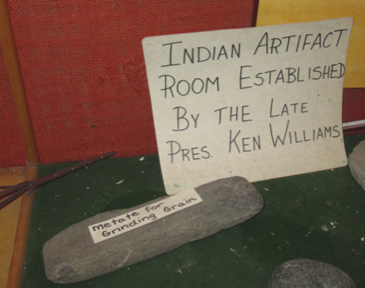 INDIAN ARTIFACT
ROOM ESTABLISHED
BY THE LATE
PRES. KEN WILLIAMS
metate for
Grinding Grain